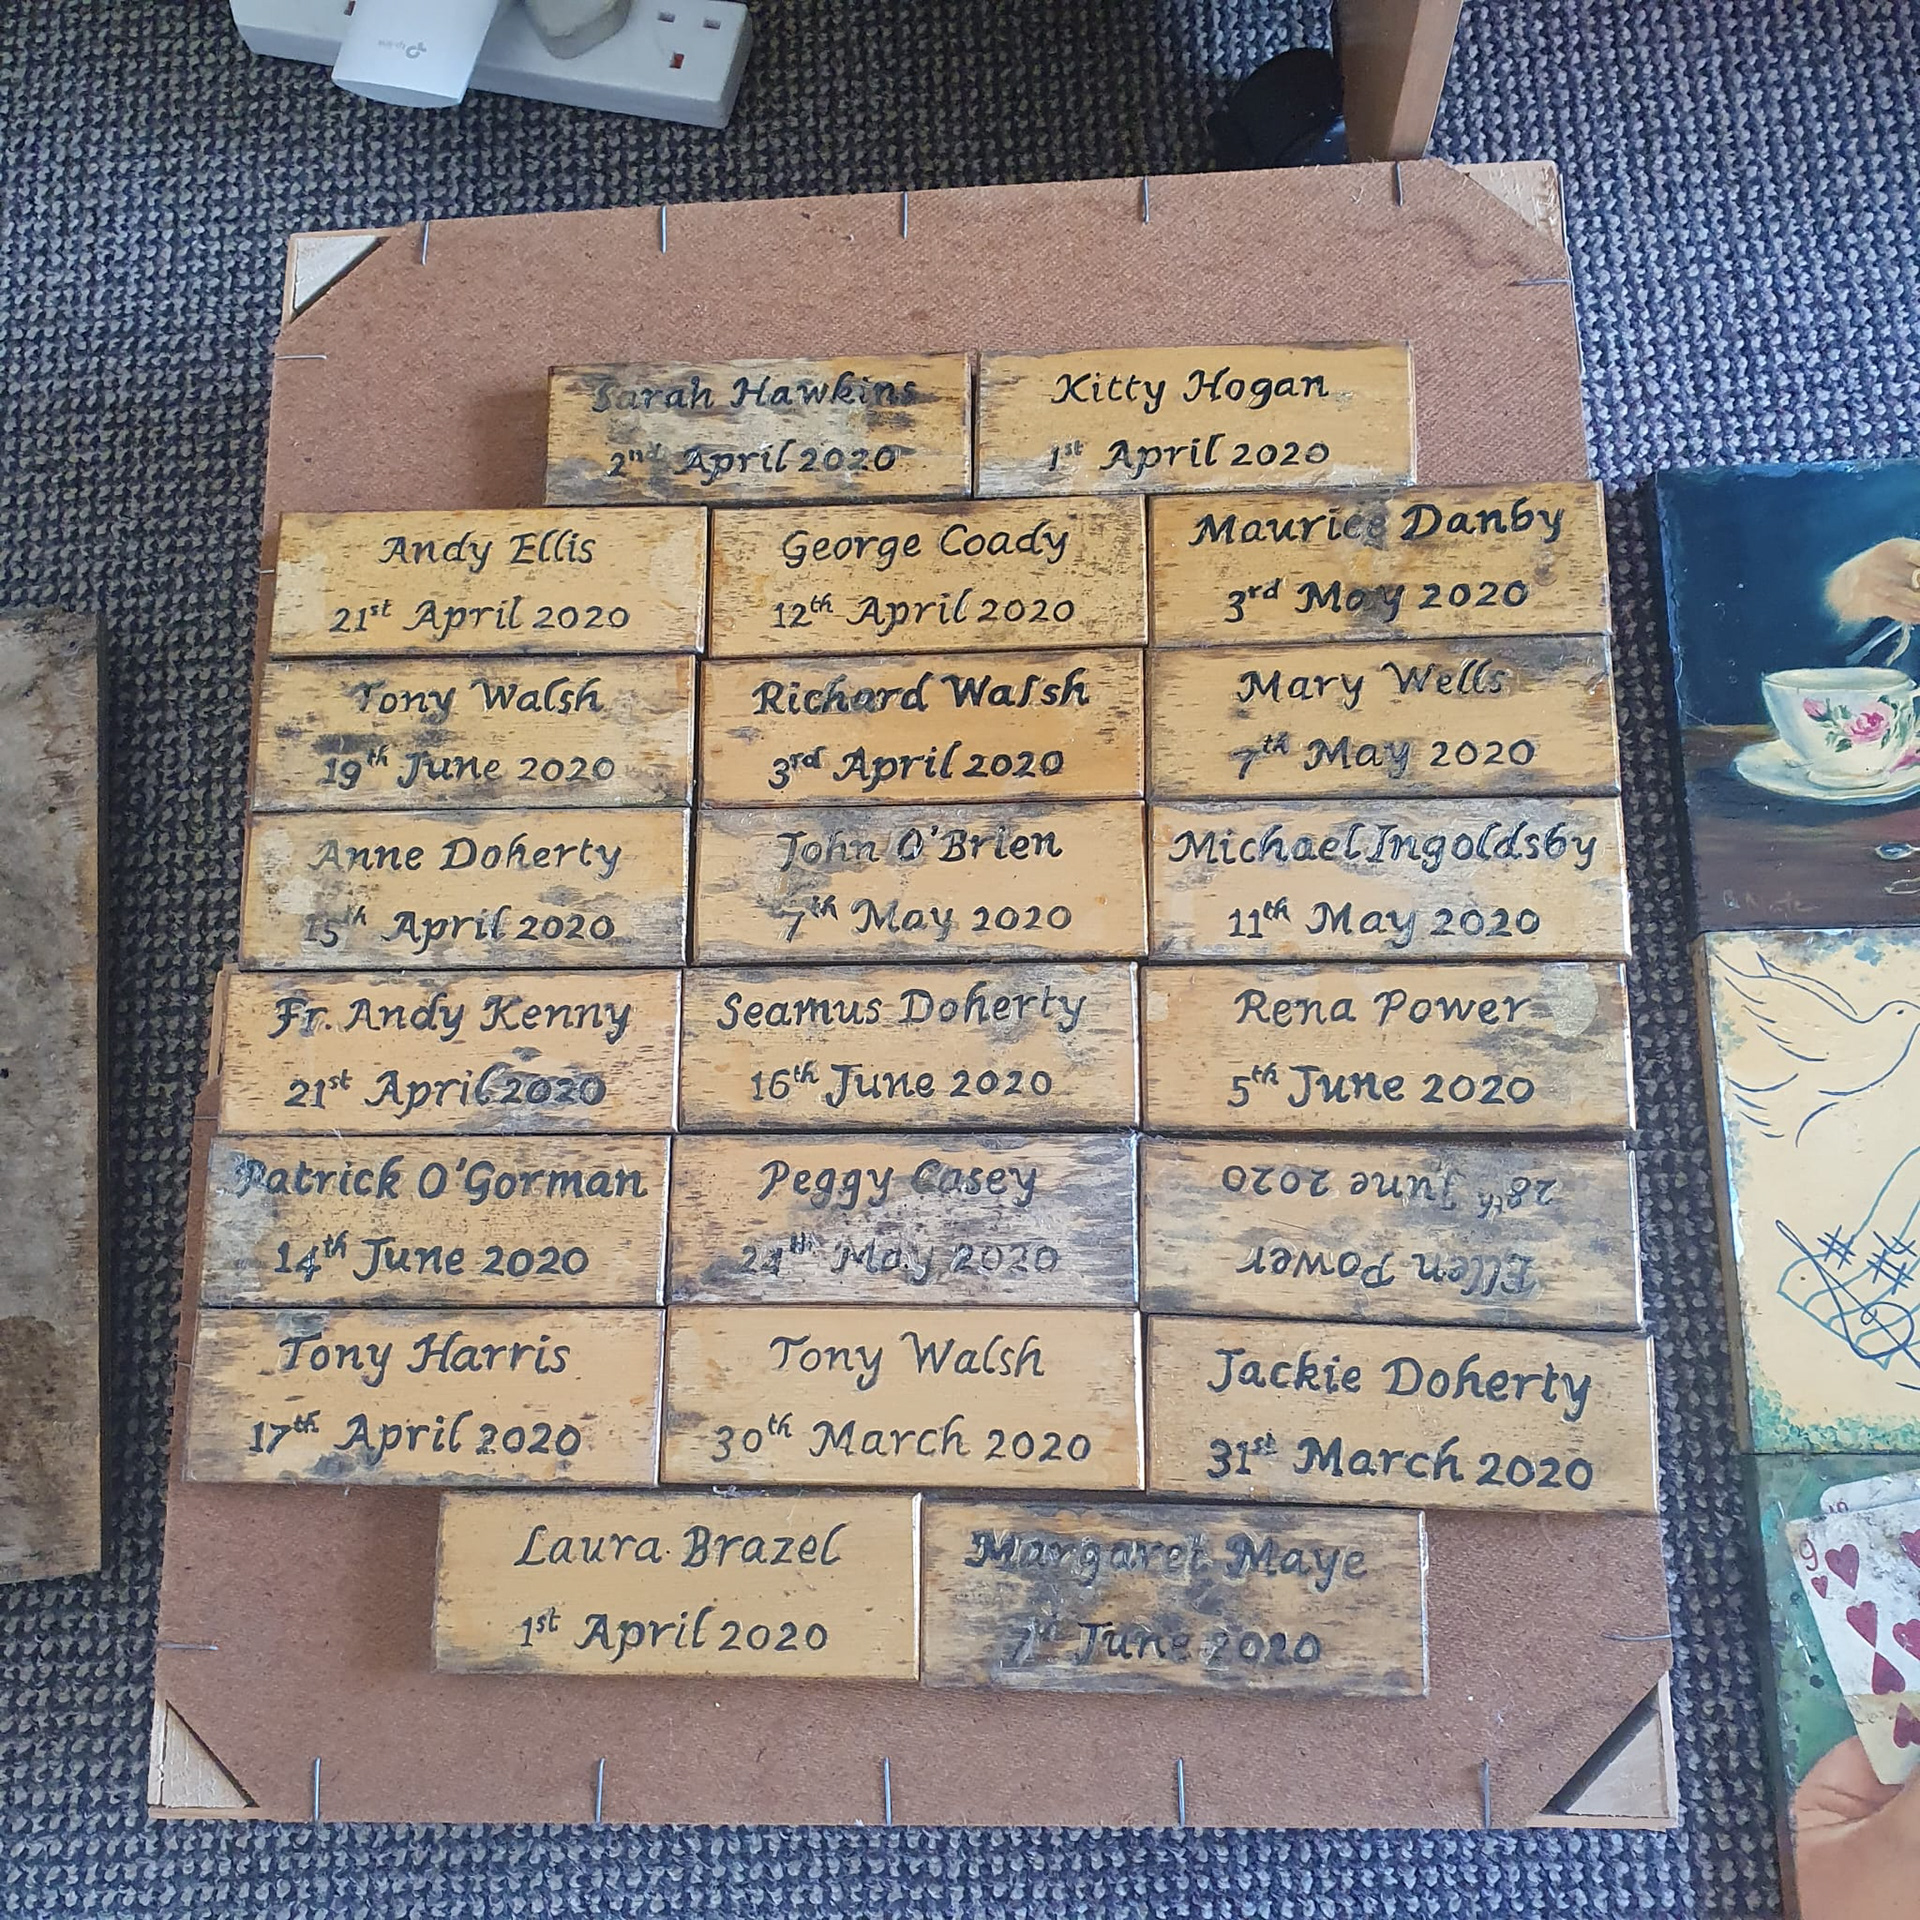 Sarah Hawkins
2nd April 2020
Kitty Hogan
1st April 2020
Andy Ellis
21st April 2020
George Coady
12th April 2020
Maurice Danby
3rd May 2020
Tony Walsh
19th June 2020
Richard Walsh
3rd April 2020
Mary Wells
7th May 2020
Anne Doherty
15th April 2020
John O'Brien
7th May 2020
Michael Ingoldsby
11th May 2020
Fr. Andy Kenny
21st April 2020
Seamus Doherty
16th June 2020
Rena Power
5th June 2020
Patrick O'Gorman
14th June 2020
Peggy Casey
24th May 2020
Ellen Power
28th June 2020
Tony Harris
17th April 2020
Tony Walsh
30th March 2020
Jackie Doherty
31st March 2020
Laura Brazel
1st April 2020
Margaret Maye
7th June 2020
9